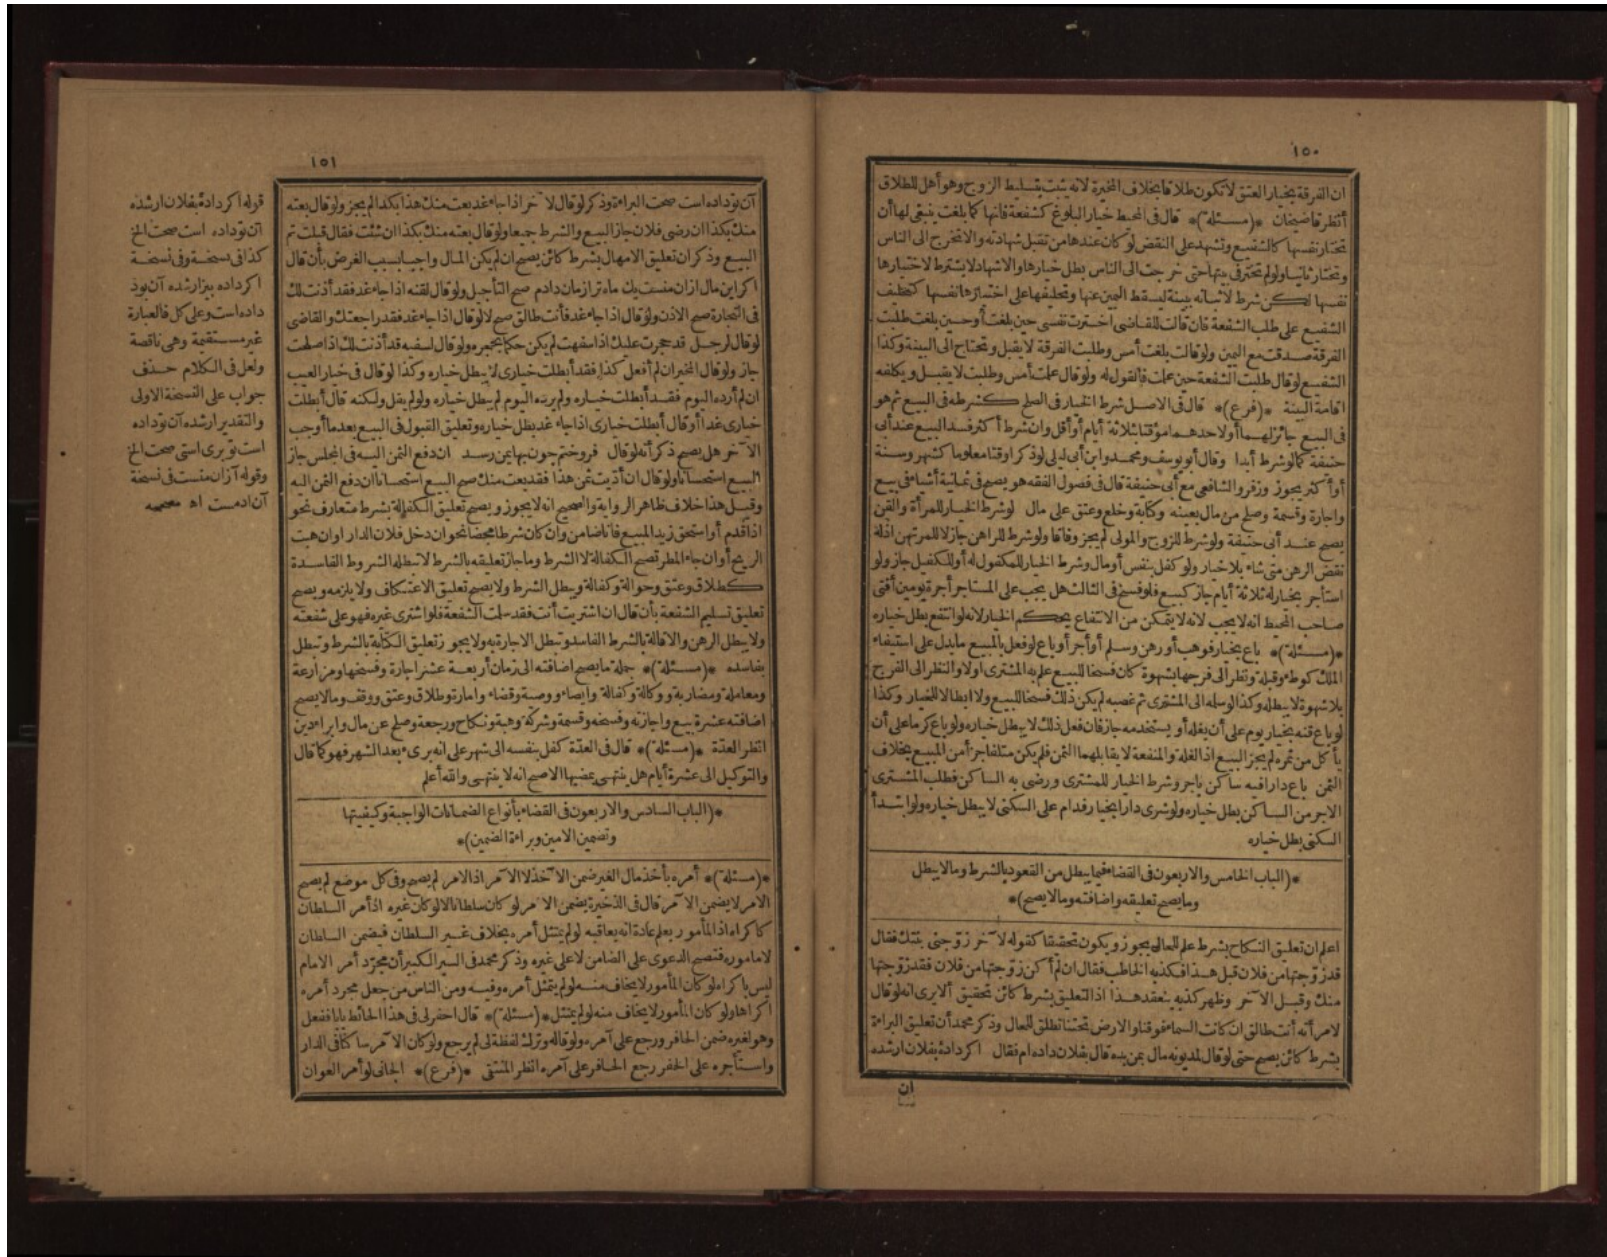 ١٥٠
ان الفرقة بخيار العتق لا تكون طلاقا بخلاف المخيرة لانه يثبت بتسليط الزوج وهو أهل للطلاق
أنظر قاضيخان *(مسئلة)* قال فى المحيط خيار البلوغ كشفعة فانها كما بلغت ينبغى لها أن
تختار نفسها كالشفيع وتشهد على النقض لو كان عندها من تقبل شهادته والا تخرج الى الناس
وتختار ثانيا ولو لم تختر فى بيتها حتى خرجت الى الناس بطل خيارها والاشهاد لا يشترط لاختيارها
نفسها لكن شرط لاثباته ببينة ليسقط اليمين عنها وتحليفها على اختيارها نفسها كتحليف
الشفيع على طلب الشفعة فان قالت للقاضى اخترت نفسى حين بلغت أو حين بلغت طلبت
الفرقة صدقت مع اليمين ولو قالت بلغت أمس وطلبت الفرقة لا يقبل وتحتاج الى البينة وكذا
الشفيع لو قال طلبت الشفعة حين علمت فالقول له ولو قال علمت أمس وطلبت لا يقبل ويكلفه
اقامة البينة *(فرع)* قال فى الاصل شرط الخيار فى الصلح كشرطه فى البيع ثم هو
فى البيع جائز لهما أو لاحدهما مؤقتا ثلاثة أيام أو أقل وان شرط أكثر فسد البيع عند أبى
حنيفة كما لو شرط أبدا وقال أبو يوسف ومحمد وابن أبى ليلى لو ذكرا وقتا معلوما كشهر وسنة
أو أكثر يجوز وزفر والشافعى مع أبى حنيفة قال فى فصول الفقه هو يصح فى ثمانية أشياء فى بيع
واجارة وقسمة وصلح من مال بعينه وكتابة وخلع وعتق على مال لو شرط الخيار للمرأة والقن
يصح عند أبى حنيفة ولو شرط للزوج والمولى لم يجز وفاقا ولو شرط للراهن جاز لا للمرتهن اذ له
نقض الرهن متى شاء بلا خيار ولو كفل بنفس أو مال وشرط الخيار للمكفول له أو للكفيل جاز ولو
استأجر بخيار له ثلاثة أيام جاز كبيع فلو فسخ فى الثالث هل يجب على المستاجر أجرة يومين أفتى
صاحب المحيط انه لا يجب لانه لا يتمكن من الانتفاع بحكم الخيار لانه لو انتفع بطل خياره
*(مسئلة)* باع بخيار فوهب أو رهن وسلم أو أجر أو باع لو فعل بالمبيع ما يدل على استيفاء
الملك كوطء وقبلة ونظر الى فرجها بشهوة كان فسخا للبيع علم به المشترى أو لا والنظر الى الفرج
بلا شهوة لا يبطله وكذا لو سلمه الى المشترى ثم غصبه لم يكن ذلك فسخا للبيع ولا ابطالا للخيار وكذا
لو باع قنه بخيار يوم على أن يغله أو يستخدمه جاز فان فعل ذلك لا يبطل خياره ولو باع كرما على أن
يأكل من ثمره لم يجز البيع اذ الغلة والمنفعة لا يقابلهما الثمن فلم يكن متلفا جزأ من المبيع بخلاف
الثمن باع دارا فيه ساكن باجر وشرط الخيار للمشترى ورضى به الساكن فطلب المشترى
الاجر من الساكن بطل خياره ولو شرى دارا بخيار فدام على السكنى لا يبطل خياره ولو ابتدأ
السكنى بطل خياره
*(الباب الخامس والاربعون فى القضاء فيما يبطل من العقود بالشرط وما لا يبطل
وما يصح تعليقه واضافته وما لا يصح)*
اعلم ان تعليق النكاح بشرط علم للحال يجوز ويكون تحقيقا كقوله لآخر زوجنى بنتك فقال
قد زوجتها من فلان قبل هذا فكذبه الخاطب فقال ان لم أكن زوجتها من فلان فقد زوجتها
منك وقبل الآخر وظهر كذبه ينعقد هذا اذ التعليق بشرط كائن تحقيق ألا يرى انه لو قال
لامرأته أنت طالق ان كانت السماء فوقنا والارض تحتنا تطلق للحال وذكر محمد أن تعليق البراءة
بشرط كائن يصح حتى لو قال لمديونه مال بمن بده قال بفلان داده ام فقال اكر دادۀ بفلان ارشده
ان
١٥١
آن تو داده است صحت البراءة وذكر لو قال لآخر اذا جاء غد بعت منك هذا بكذا لم يجز ولو قال بعته
منك بكذا ان رضى فلان جاز البيع والشرط جميعا ولو قال بعته منك بكذا ان شئت فقال قبلت تم
البيع وذكر ان تعليق الامهال بشرط كائن يصح ان لم يكن المال واجبا بسبب القرض بأن قال
اكر اين مال از ان منست يك ماه ترا زمان دادم صح التأجيل ولو قال لقنه اذا جاء غد فقد أذنت لك
فى التجارة صح الاذن ولو قال اذا جاء غد فأنت طالق صح لا لو قال اذا جاء غد فقد راجعتك والقاضى
لو قال لرجل قد حجرت عليك اذا سفهت لم يكن حكما بحجره ولو قال لسفيه قد أذنت لك اذا صلحت
جاز ولو قال المخير ان لم أفعل كذا فقد أبطلت خيارى لا يبطل خياره وكذا لو قال فى خيار العيب
ان لم أرده اليوم فقد أبطلت خياره ولم يرده اليوم لم يبطل خياره ولو لم يقل ولكنه قال أبطلت
خيارى غدا أو قال أبطلت خيارى اذا جاء غد بطل خياره وتعليق القبول فى البيع بعدما أوجب
الآخر هل يصح ذكر أنه لو قال فروختم چون بهايمن رسد ان دفع الثمن اليه فى المجلس جاز
البيع استحسانا ولو قال ان أديت ثمن هذا فقد بعت منك صح البيع استحسانا ان دفع الثمن اليه
وقيل هذا خلاف ظاهر الرواية والصحيح انه لا يجوز ويصح تعليق الكفالة بشرط متعارف نحو
اذا قدم أو استحق زيد المبيع فانا ضامن وان كان شرطا محضا نحو ان دخل فلان الدار او ان هبت
الريح أو ان جاء المطر تصح الكفالة لا الشرط وما جاز تعليقه بالشرط لا تبطله الشروط الفاسدة
كطلاق وعتق وحوالة وكفالة ويبطل الشرط ولا يصح تعليق الاعتكاف ولا يلزمه ويصح
تعليق تسليم الشفعة بأن قال ان اشتريت أنت فقد سلمت الشفعة فلو اشترى غيره فهو على شفعته
ولا يبطل الرهن والاقالة بالشرط الفاسد وتبطل الاجارة به ولا يجوز تعليق الكتابة بالشرط وتبطل
بفاسده *(مسئلة)* جملة ما يصح اضافته الى زمان أربعة عشر اجارة وفسخها ومزارعة
ومعاملة ومضاربة ووكالة وكفالة وايصاء ووصية وقضاء وامارة وطلاق وعتق ووقف وما لا يصح
اضافته عشرة بيع واجازته وفسخه وقسمة وشركة وهبة ونكاح ورجعة وصلح عن مال وابراء دين
انظر العدة *(مسئلة)* قال فى العدة كفل بنفسه الى شهر على انه برىء بعد الشهر فهو كما قال
والتوكيل الى عشرة أيام هل ينتهى بمضيها الاصح انه لا ينتهى والله أعلم
*(الباب السادس والاربعون فى القضاء بأنواع الضمانات الواجبة وكيفيتها
وتضمين الامين وبراءة الضمين)*
*(مسئلة)* أمره بأخذ مال الغير ضمن الآخذ لا الآمر اذ الامر لم يصح وفى كل موضع لم يصح
الامر لا يضمن الآمر قال فى الذخيرة يضمن الآمر لو كان سلطانا لا لو كان غيره اذ أمر السلطان
كاكراه اذ المأمور يعلم عادة انه يعاقبه لو لم يمتثل أمره بخلاف غير السلطان فيضمن السلطان
لا ماموره فتصح الدعوى على الضامن لا على غيره وذكر محمد فى السير الكبير أن مجرد أمر الامام
ليس باكراه لو كان المأمور لا يخاف منه لو لم يمتثل أمره وفيه ومن الناس من جعل مجرد أمره
اكراها ولو كان المأمور لا يخاف منه لو لم يمتثل *(مسئلة)* قال احفر لى فى هذا الحائط بابا ففعل
وهو لغيره ضمن الحافر ورجع على آمره ولو قاله وترك لفظة لى لم يرجع ولو كان الآمر ساكنا فى الدار
واستأجره على الحفر رجع الحافر على آمره انظر المنتقى *(فرع)* الجانى لو أمر العوان
قوله اكر دادۀ بفلان ارشده
آن تو داده است صحت الخ
كذا فى نسخة وفى نسخة
اكر داده بيزار شده آن بوذ
داده است وعلى كل فالعبارة
غير مستقيمة وهى ناقصة
ولعل فى الكلام حذف
جواب على النسخة الاولى
والتقدير ارشده آن تو داده
است تو برى استى صحت الخ
وقوله آزان منست فى نسخة
آن ادمست اه مصححه